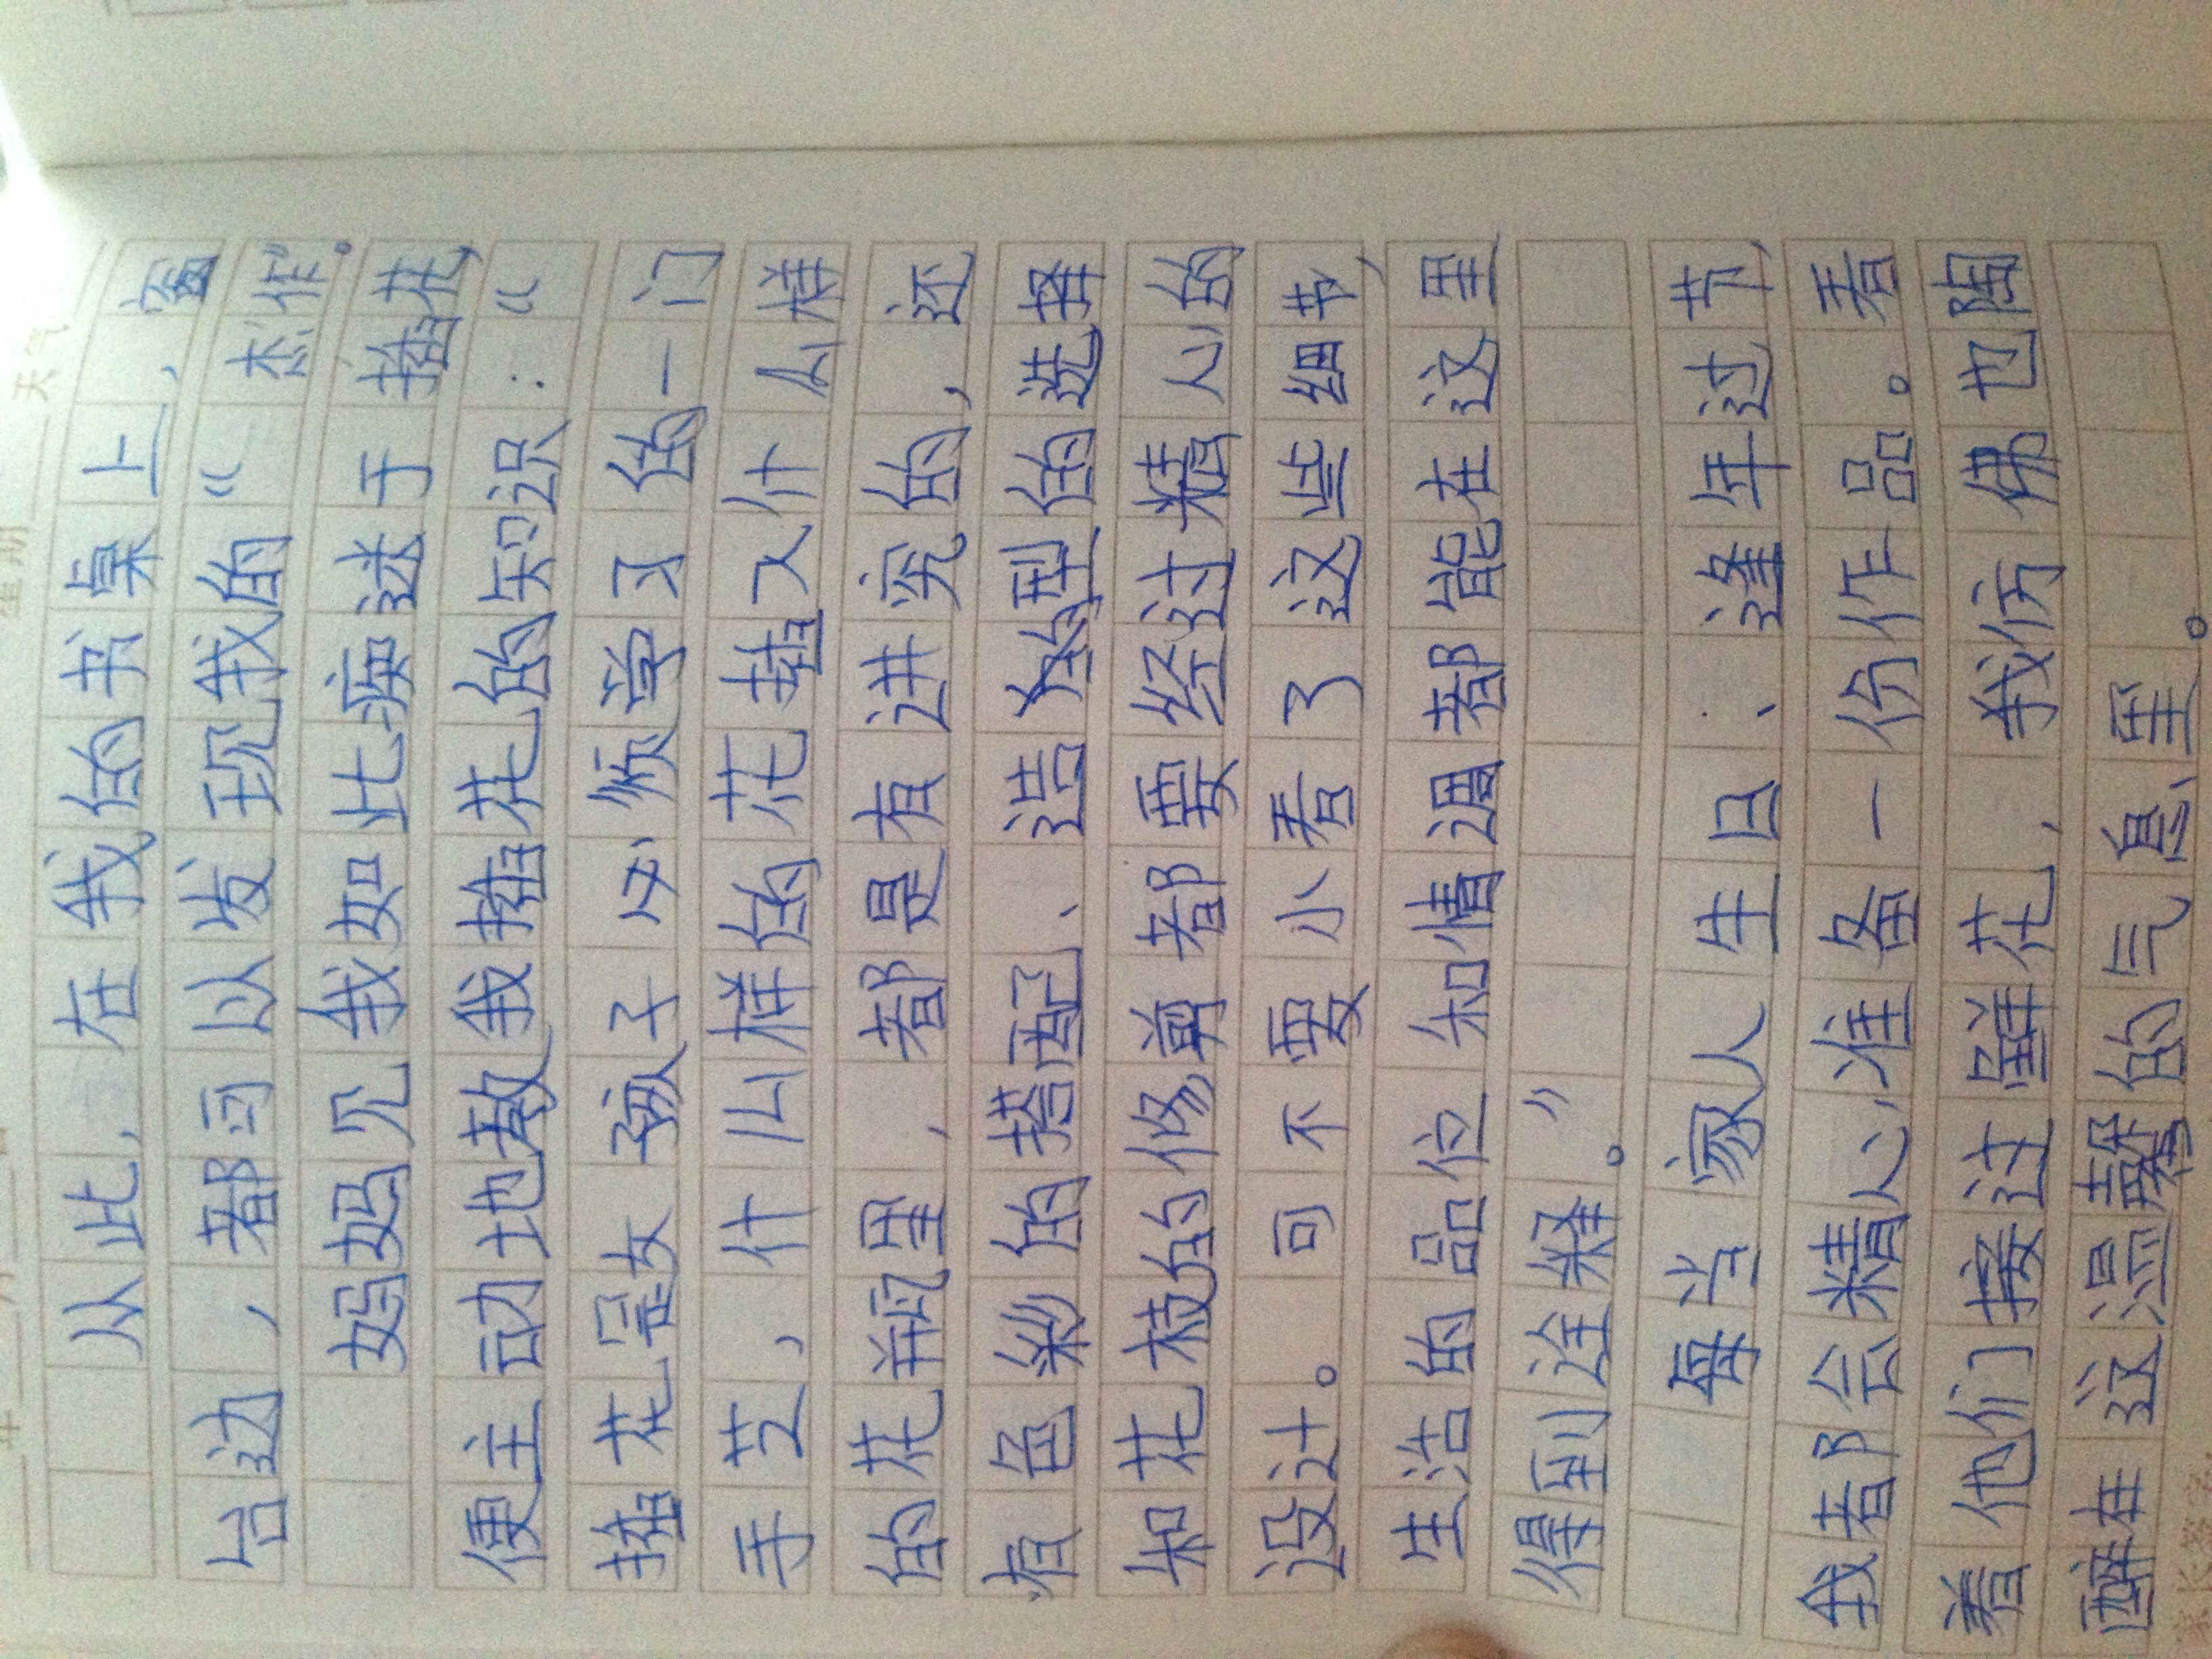 天气
从此,在我的书桌上,窗
台边,都可以发现我的“杰作”。
妈妈见我如此痴迷于插花,
便主动地教我插花的知识:“
插花是女孩子必须学习的一门
手艺,什么样的花插入什么样
的花瓶里,都是有讲究的,还
有色彩的搭配、造型的选择
和花枝的修剪都要经过精心的
设计。可不要小看了这些细节,
生活的品位和情调都能在这里
得到诠释。”
每当家人生日、逢年过节,
我都会精心准备一份作品。看
着他们接过鲜花,我仿佛也陶
醉在这温馨的气息里。